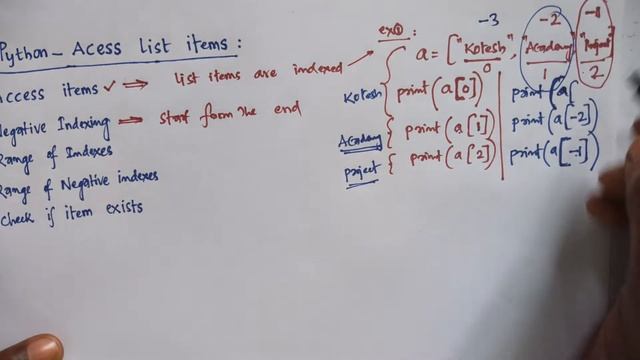 Python - Acess List items :
Access items ✓ ⇒ List items are indexed
Negative Indexing ⇒ start form the end
Range of Indexes
Range of Negative indexes
Check if item exists
ex①:
-3 -2 -1
a = ["Kotesh", "Academy", "Project"]
0 1 2
Kotesh { print(a[0]) print(a[
Academy { print(a[1]) print(a[-2])
project { print(a[2]) print(a[-1])